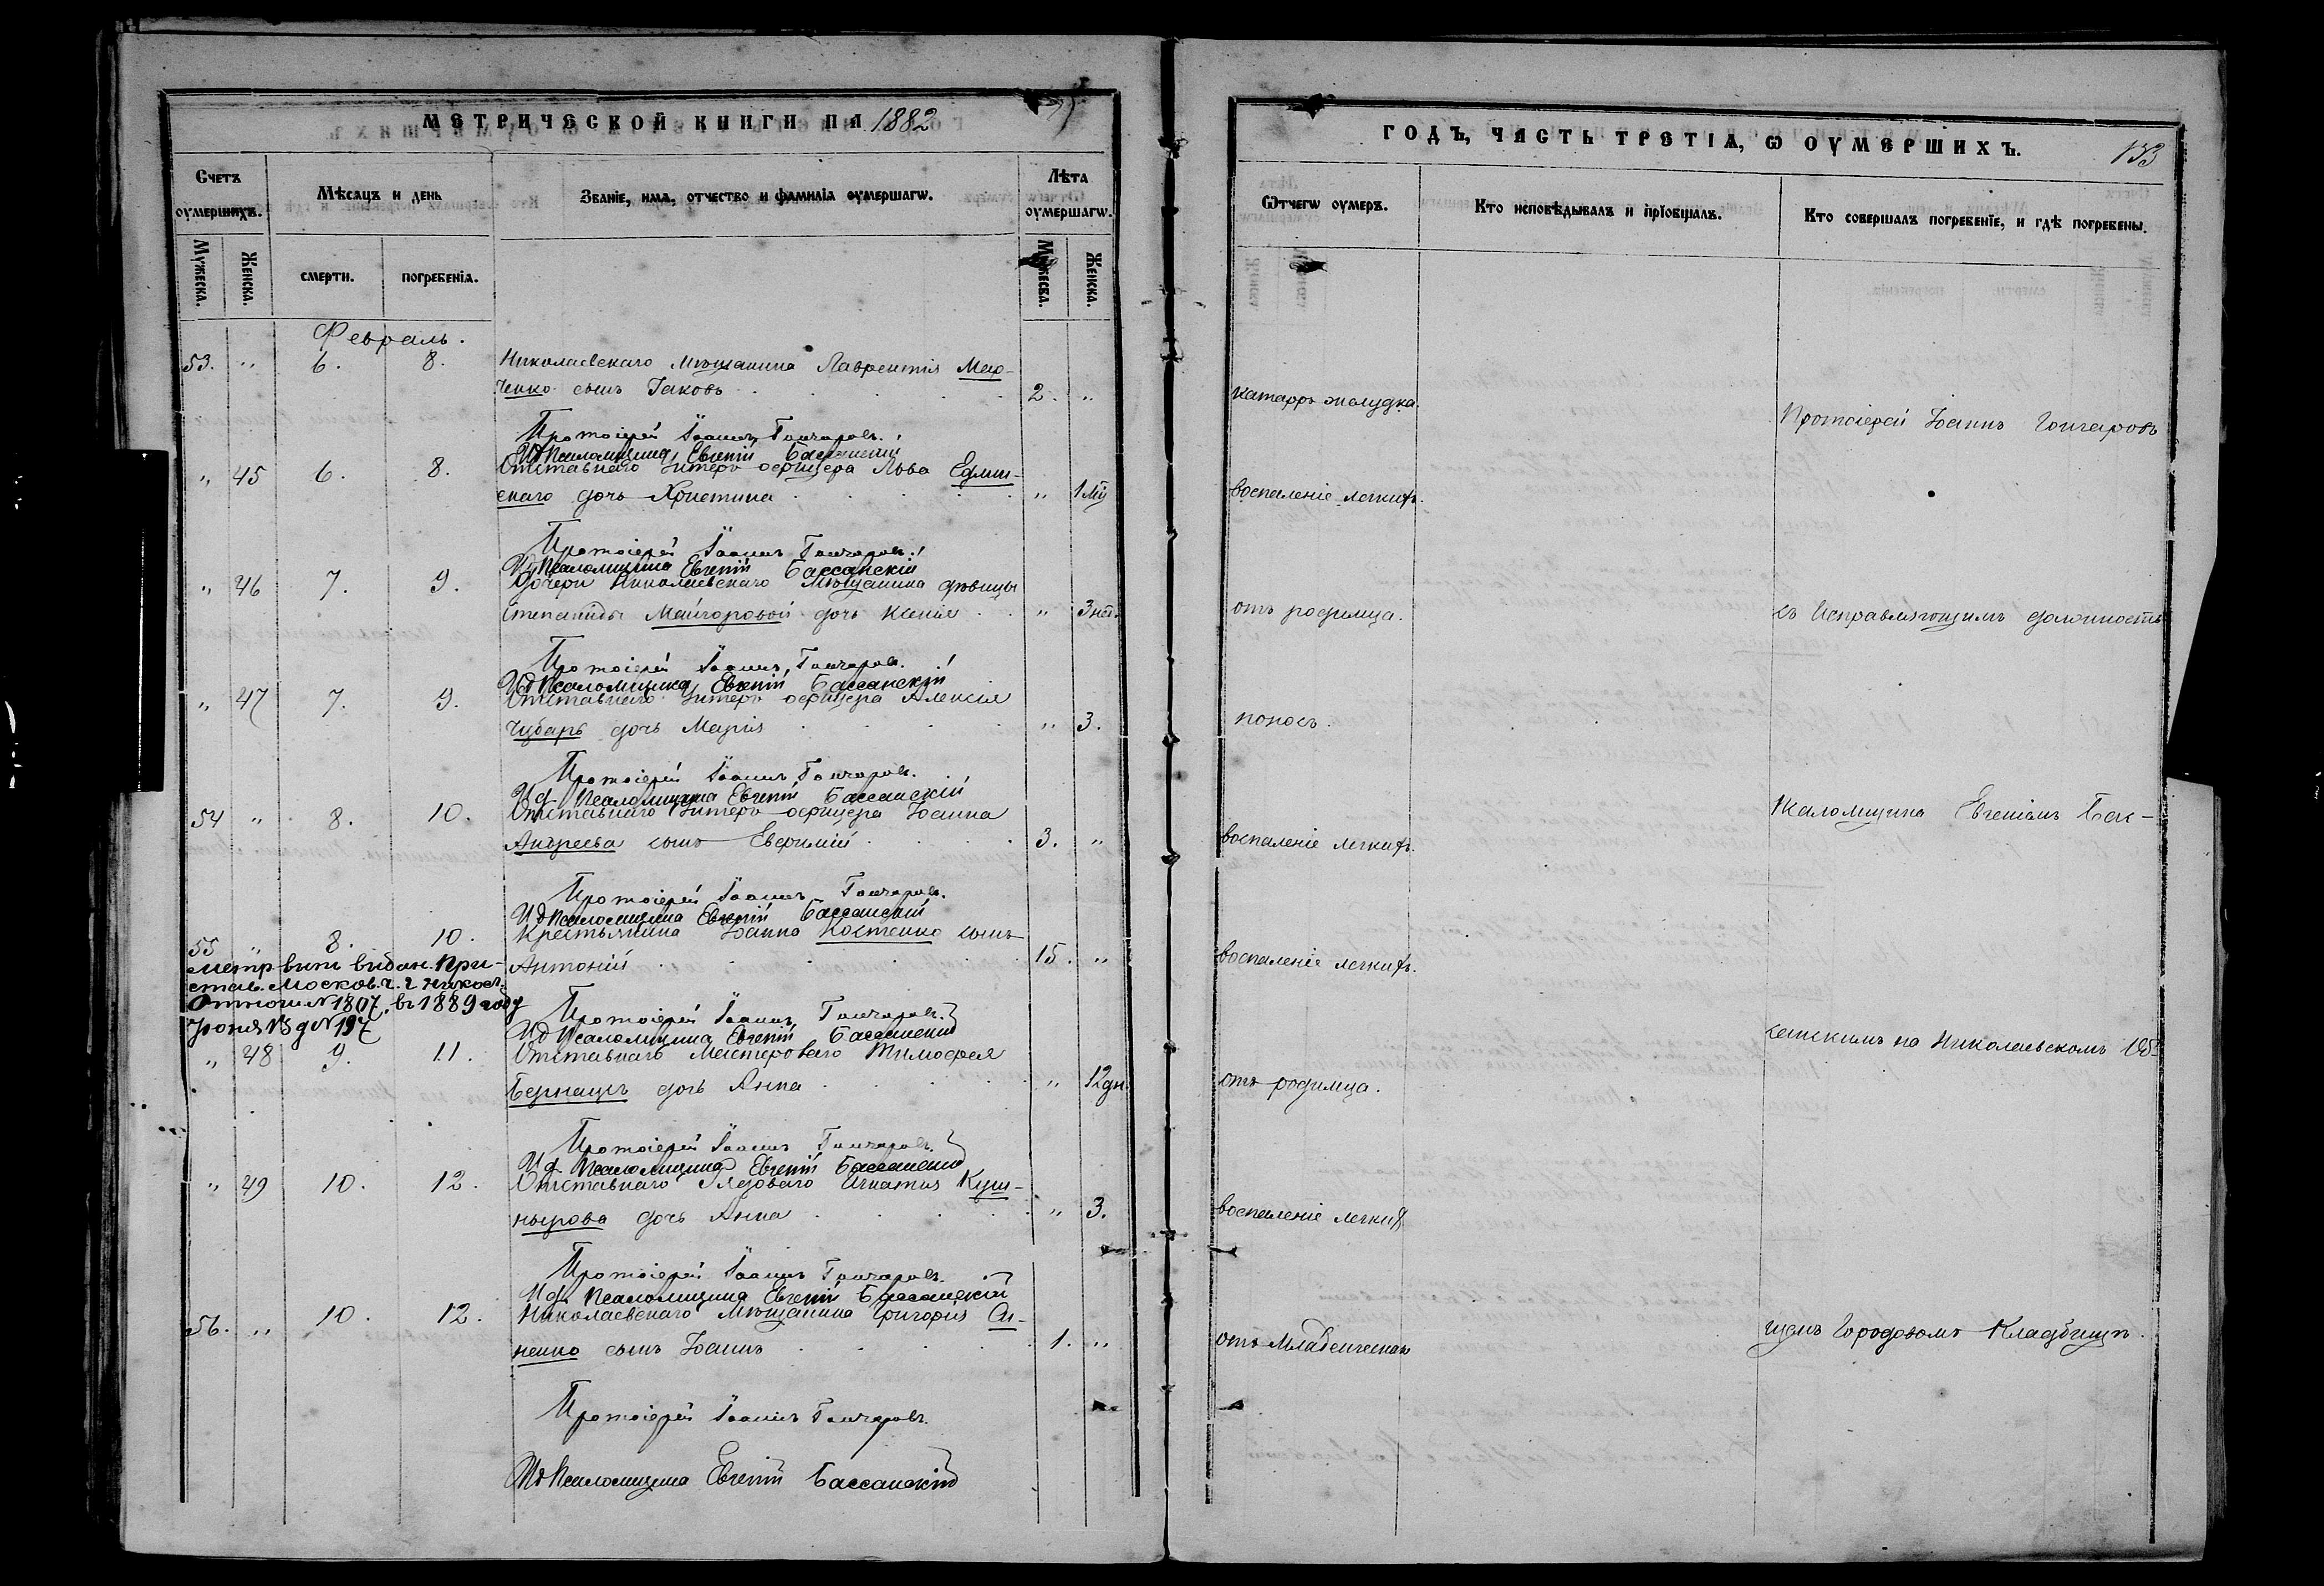 МЕТРИЧЕСКОЙ КНИГИ НА 1882
Счетъ оумершихъ.
Мѣсяцъ и день
Званіе, имя, отчество и фамилія оумершагw.
Лѣта оумершагw.
Мужеска.
Женска.
смерти.
погребенія.
Мужеска.
Женска.
Февраль.
53. " 6. 8. Николаевскаго Мѣщанина Лаврентія Мар-
ченко сынъ Іаковъ 2. "
Протоіерей Іоаннъ Гончаровъ.
И д Псаломщика Евгеній Бассанскій
" 45 6. 8. Отставнаго Унтеръ офицера Льва
скаго дочь Христина " 1
Протоіерей Іоаннъ Гончаровъ.
И д Псаломщика Евгеній Бассанскій
" 46 7. 9. Дочери Николаевскаго Мѣщанина дѣвицы
Степаниды Майгоровой дочь Ксенія " 3 нед.
Протоіерей Іоаннъ Гончаровъ.
И д Псаломщика Евгеній Бассанскій
" 47 7. 9. Отставнаго Унтеръ офицера Алексія
Чубарь дочь Марія " 3.
Протоіерей Іоаннъ Гончаровъ.
И д Псаломщика Евгеній Бассанскій
54 " 8. 10. Отставнаго Унтеръ-офицера Іоанна
Андреева сынъ Евфимій 3. "
Протоіерей Іоаннъ Гончаровъ.
И д Псаломщика Евгеній Бассанскій
55 " 8. 10. Крестьянина Іоанна Костенко сынъ
Антоній 15. "
Метр вип видан. При-
став. Москов. ч. г Никол.
Отнош № 1807, въ 1889 году
№ 197
Протоіерей Іоаннъ Гончаровъ.
И д Псаломщика Евгеній Бассанскій
" 48 9. 11. Отставнаго Мастероваго Тимофея
Бернацъ дочь Анна " 12 дн.
Протоіерей Іоаннъ Гончаровъ.
И д Псаломщика Евгеній Бассанскій
" 49 10. 12. Отставнаго Рядоваго Игнатія Куш-
нырова дочь Анна " 3.
Протоіерей Іоаннъ Гончаровъ.
И д Псаломщика Евгеній Бассанскій
56. " 10. 12. Николаевскаго Мѣщанина Григорія Си-
ненко сынъ Іоаннъ 1. "
Протоіерей Іоаннъ Гончаровъ.
И д Псаломщика Евгеній Бассанскій
ГОДЪ, ЧАСТЬ ТРЕТІЯ, W ОУМЕРШИХЪ.
153
Wтчегw оумеръ.
Кто исповѣдывалъ и пріобщалъ.
Кто совершалъ погребеніе, и гдѣ погребены.
катарръ желудка.
Протоіерей Іоаннъ Гончаровъ
воспаленіе легкихъ.
отъ родимца.
съ Исправляющимъ должность
поносъ.
Псаломщика Евгеніемъ Бас-
воспаленіе легкихъ.
воспаленіе легкихъ.
санскимъ на Николаевскомъ Об-
отъ родимца.
воспаленіе легкихъ
щемъ Городскомъ Кладбищѣ.
отъ Младенческой